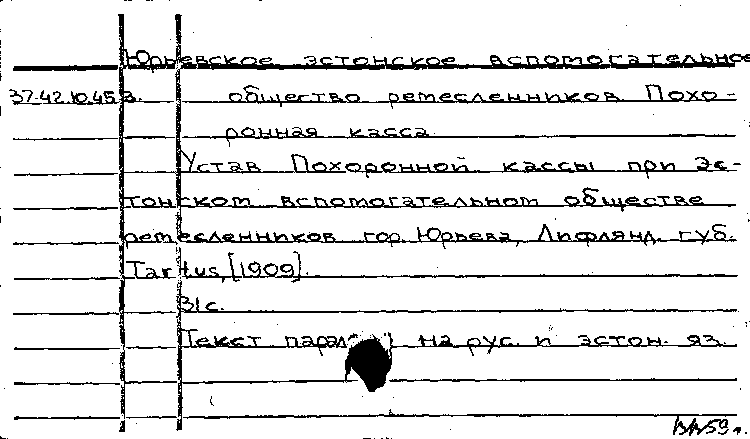 Юрьевское эстонское вспомогательное
37-42.10.453. общество ремесленников. Похо-
ронная касса.
Устав Похоронной кассы при Эс-
тонском вспомогательном обществе
ремесленников гор. Юрьева, Лифлянд. губ.
Tartus, [1909].
31с.
Текст на рус. и эстон. яз.